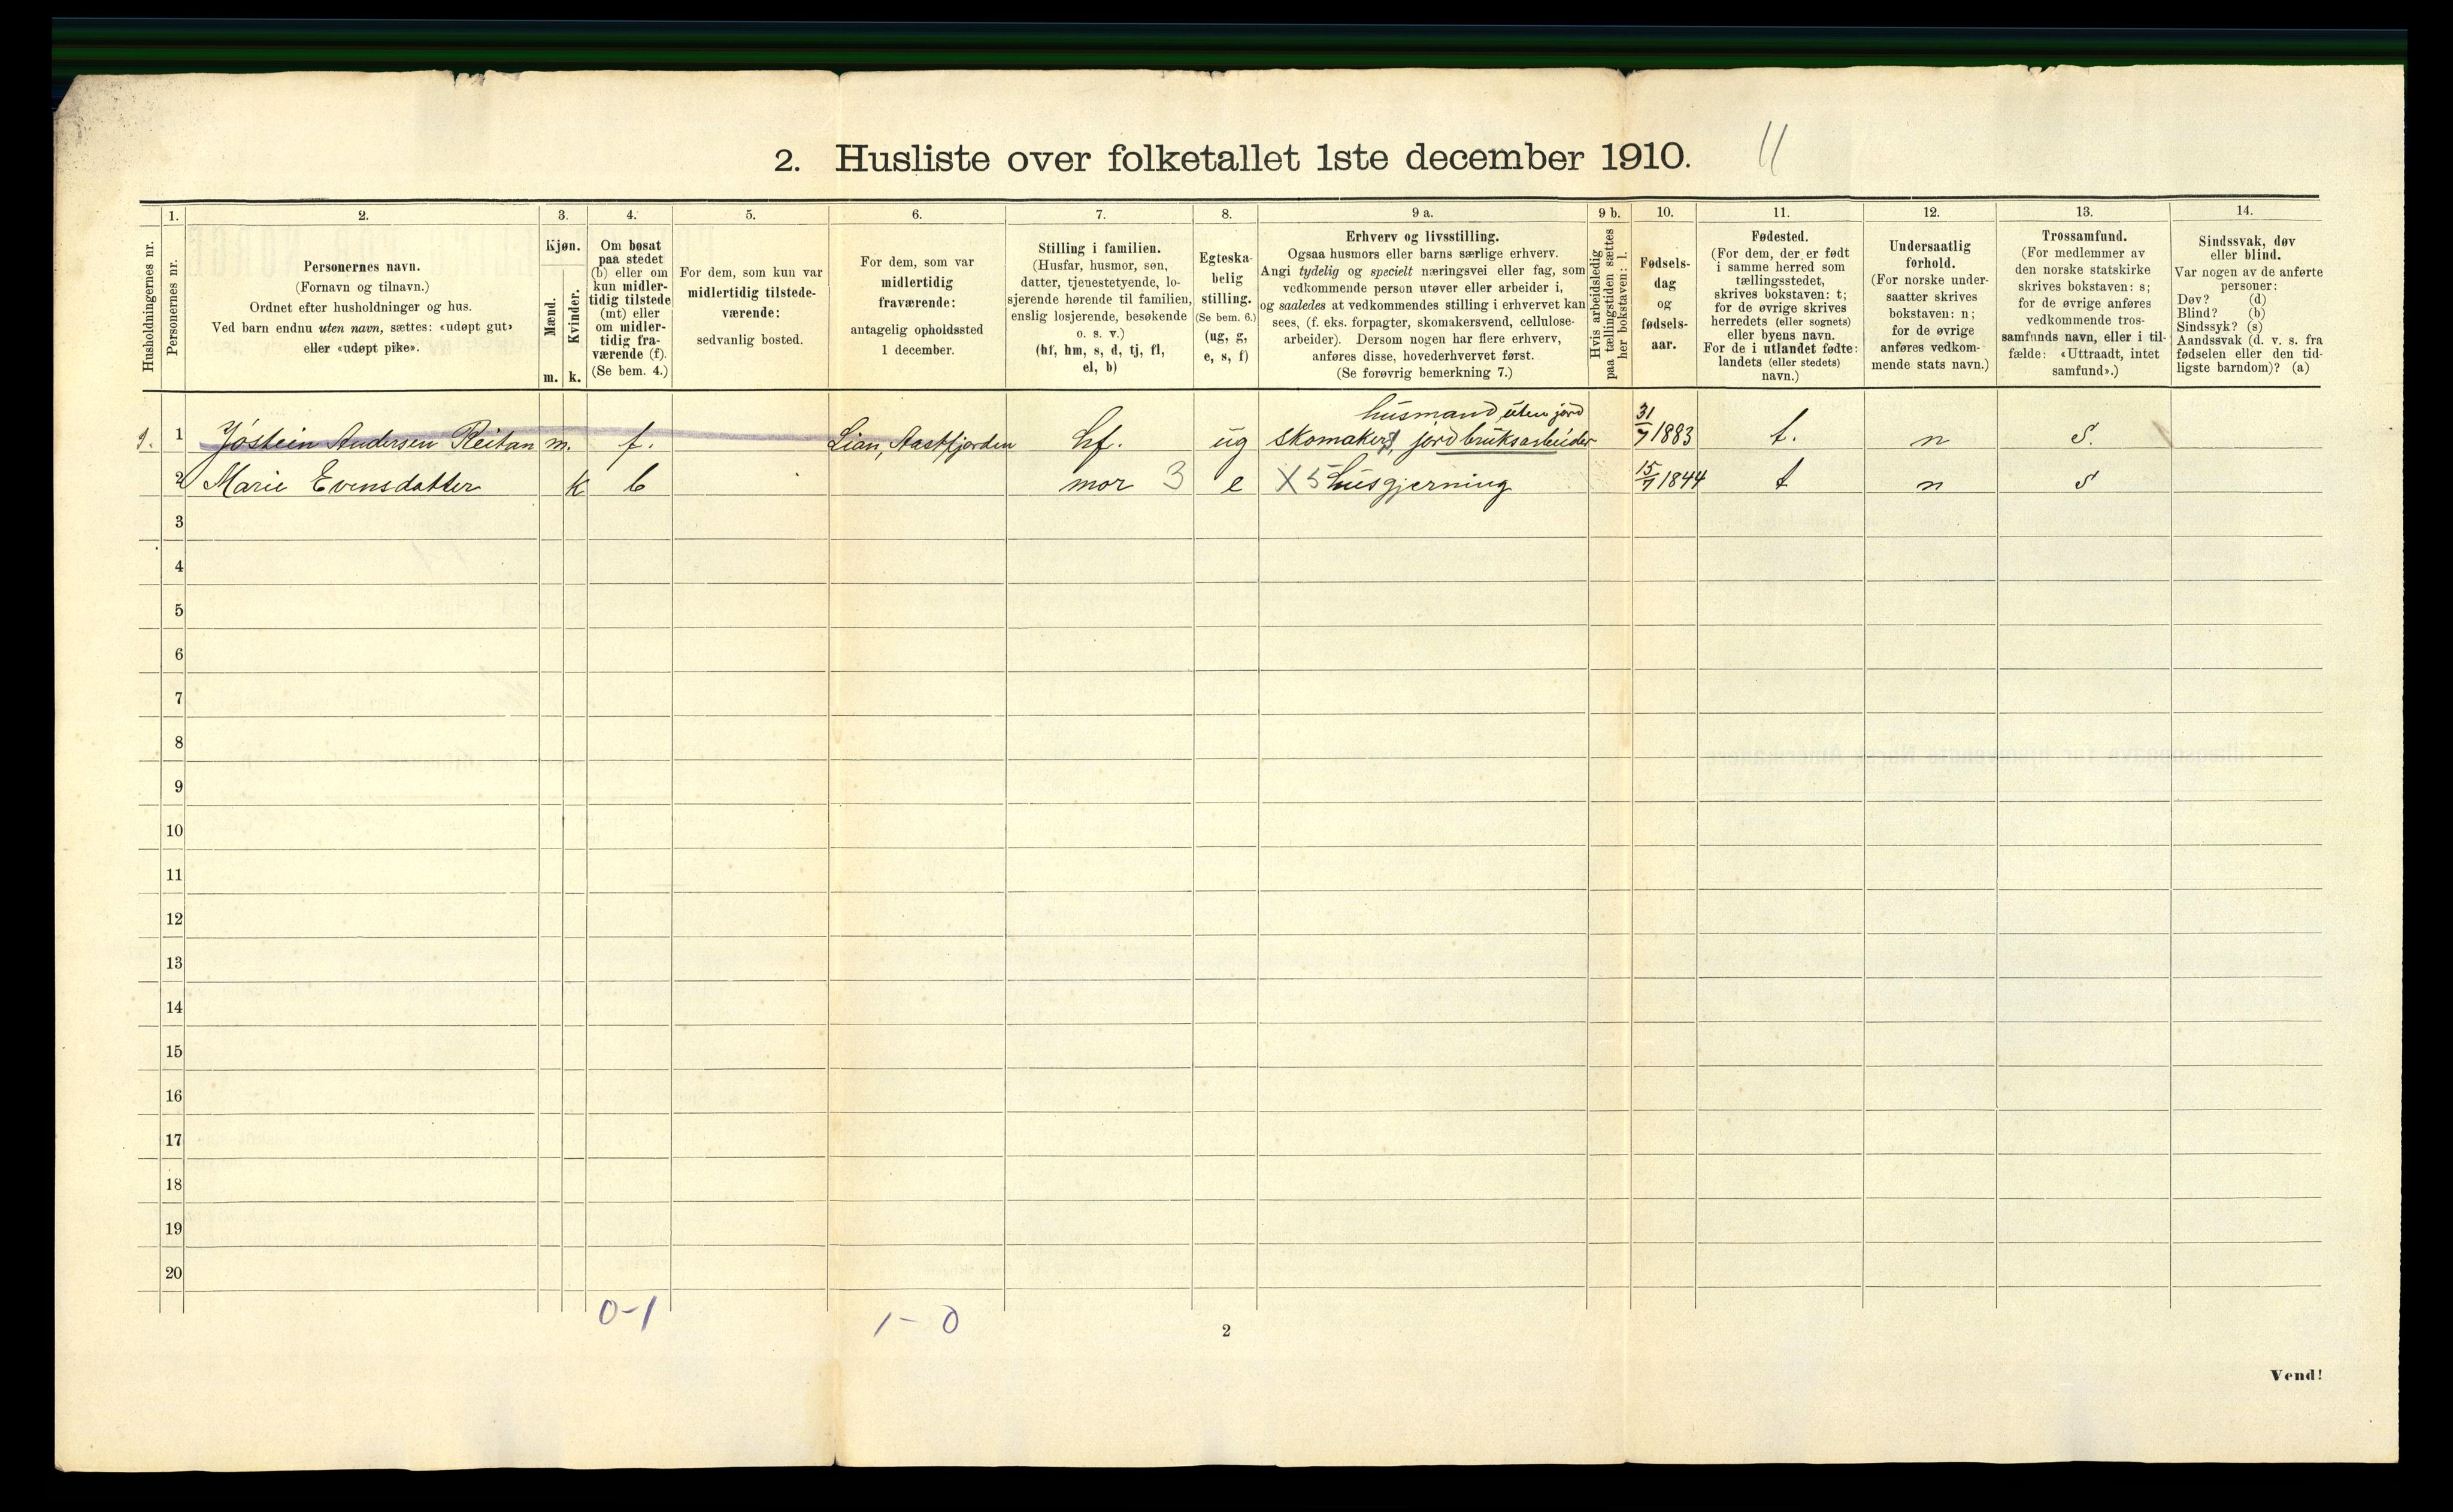 2. Husliste over folketallet 1ste december 1910. 11
Husholdningernes nr.
1.
Personernes nr.
2.
Personernes navn.
(Fornavn og tilnavn.)
Ordnet efter husholdninger og hus.
Ved barn endnu uten navn, sættes: «udøpt gut»
eller «udøpt pike».
3.
Kjøn.
Mænd.
m.
Kvinder.
k.
4.
Om bosat
paa stedet
(b) eller om
kun midler-
tidig tilstede
(mt) eller
om midler-
tidig fra-
værende (f).
(Se bem. 4.)
5.
For dem, som kun var
midlertidig tilstede-
værende:
sedvanlig bosted.
6.
For dem, som var
midlertidig
fraværende:
antagelig opholdssted
1 december.
7.
Stilling i familien.
(Husfar, husmor, søn,
datter, tjenestetyende, lo-
sjerende hørende til familien,
enslig losjerende, besøkende
o. s. v.)
(hf, hm, s, d, tj, fl,
el, b)
8.
Egteska-
belig
stilling.
(Se bem. 6.)
(ug, g,
e, s, f)
9 a.
Erhverv og livsstilling.
Ogsaa husmors eller barns særlige erhverv.
Angi tydelig og specielt næringsvei eller fag, som
vedkommende person utøver eller arbeider i,
og saaledes at vedkommendes stilling i erhvervet kan
sees, (f. eks. forpagter, skomakersvend, cellulose-
arbeider). Dersom nogen har flere erhverv,
anføres disse, hovederhvervet først.
(Se forøvrig bemerkning 7.)
9 b.
Hvis arbeidsledig
paa tællingstiden sættes
her bokstaven: l.
10.
Fødsels-
dag
og
fødsels-
aar.
11.
Fødested.
(For dem, der er født
i samme herred som
tællingsstedet,
skrives bokstaven: t;
for de øvrige skrives
herredets (eller sognets)
eller byens navn.
For de i utlandet fødte:
landets (eller stedets)
navn.)
12.
Undersaatlig
forhold.
(For norske under-
saatter skrives
bokstaven: n;
for de øvrige
anføres vedkom-
mende stats navn.)
13.
Trossamfund.
(For medlemmer av
den norske statskirke
skrives bokstaven: s;
for de øvrige anføres
vedkommende tros-
samfunds navn, eller i til-
fælde: «Uttraadt, intet
samfund».)
14.
Sindssvak, døv
eller blind.
Var nogen av de anførte
personer:
Døv? (d)
Blind? (b)
Sindssyk? (s)
Aandssvak (d. v. s. fra
fødselen eller den tid-
ligste barndom)? (a)
husmand uten jord
1. 1 Jøstein Andersen Reitan m. f. Lian, Aastfjorden hf. ug skomaker, jordbruksarbeider 31/7 1883 t. n s.
2 Marie Evensdatter k b mor 3 e X 5 husgjerning 15/7 1844 t n s
3
4
5
6
7
8
9
10
11
12
13
14
15
16
17
18
19
20
0-1 1-0
2
Vend!